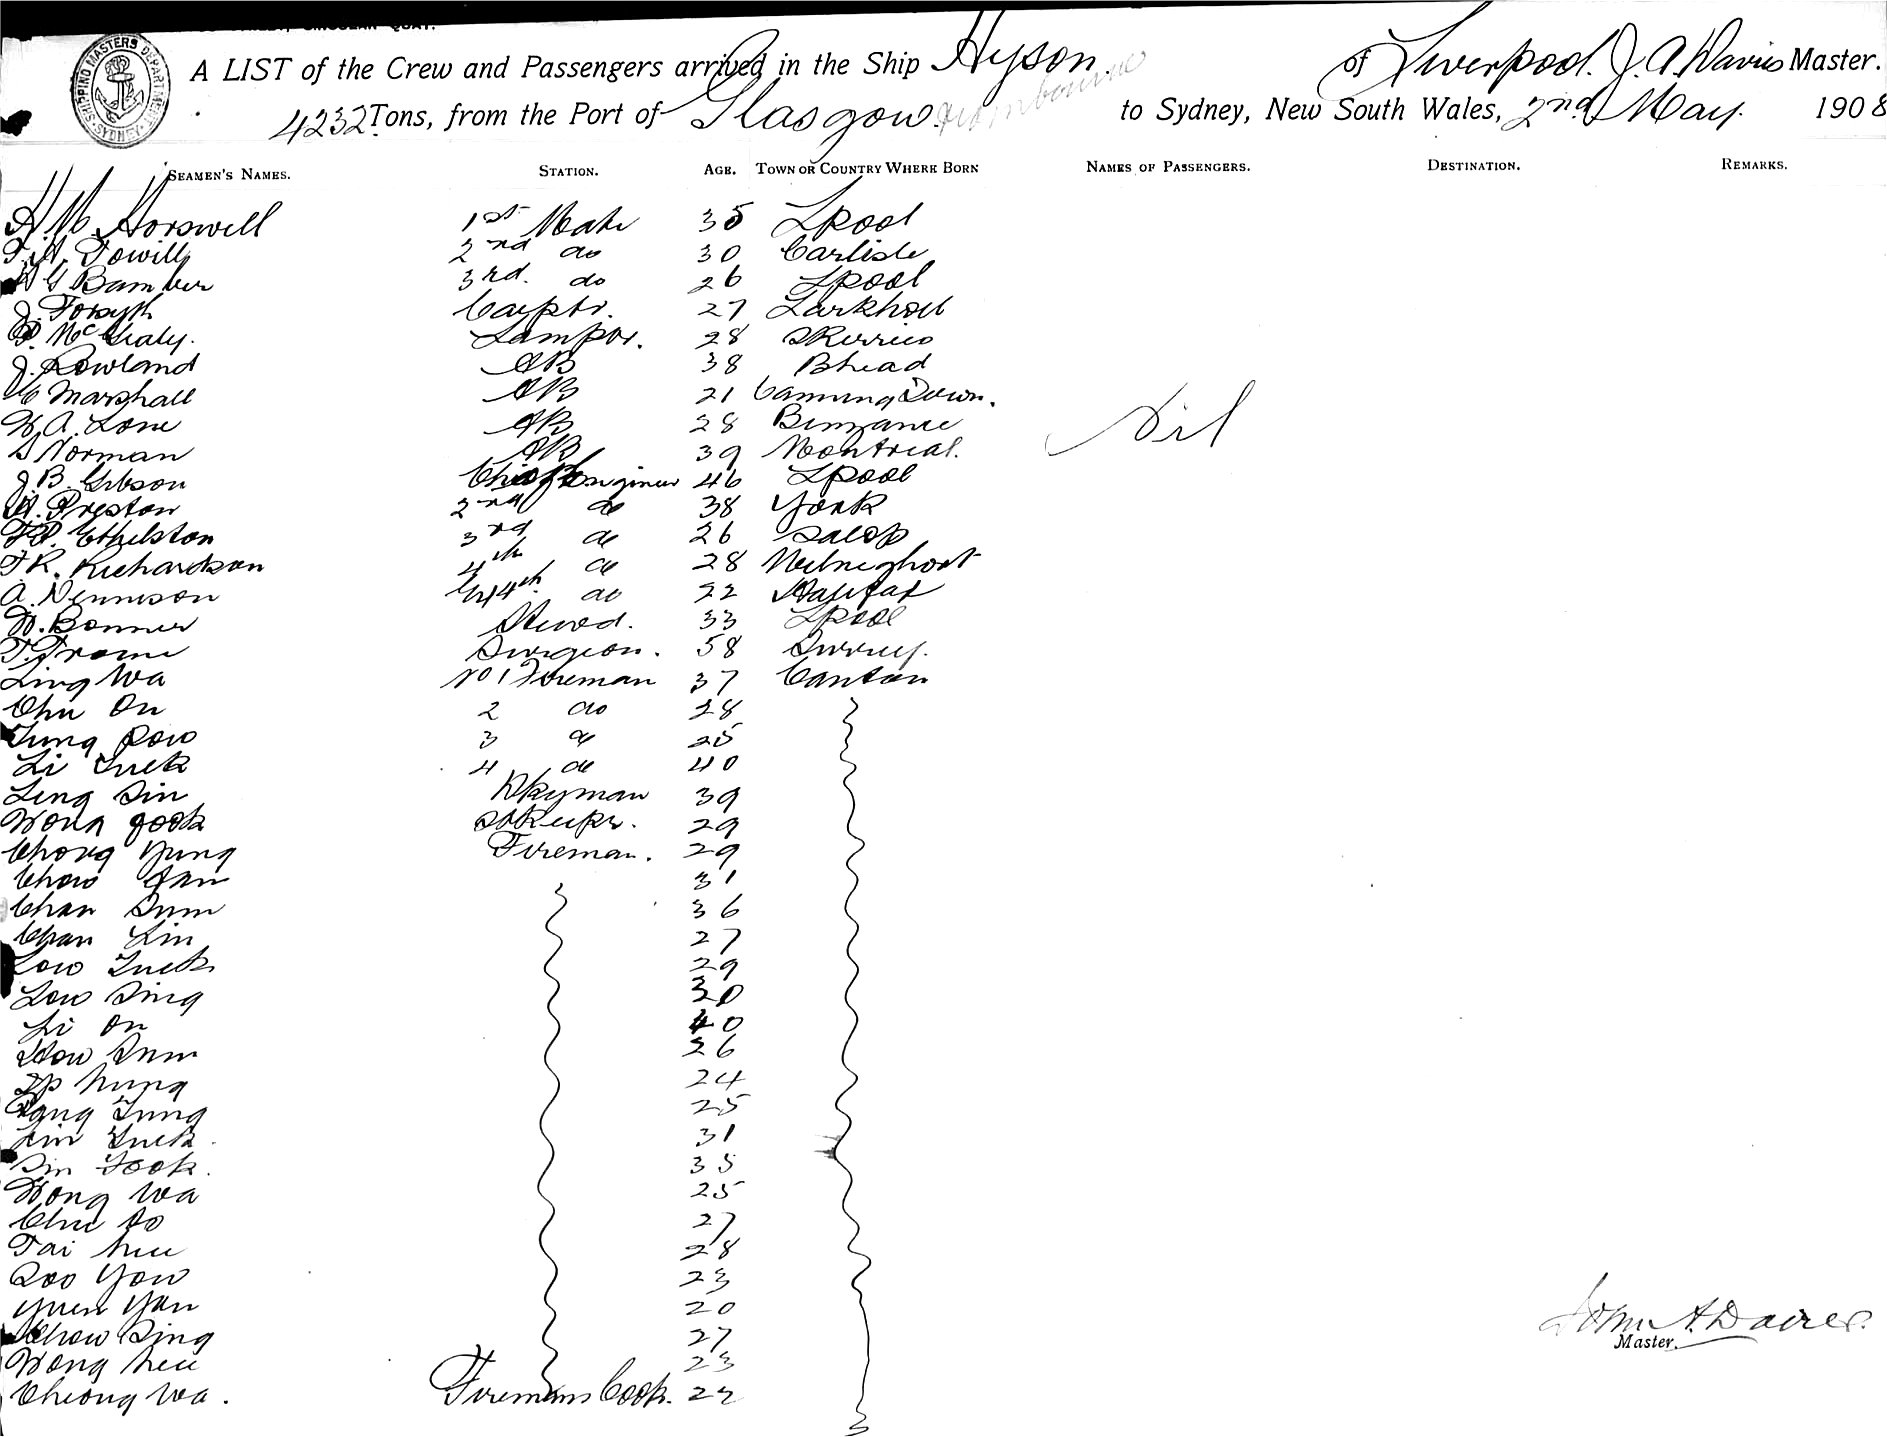 SHIPPING MASTERS DEPARTMENT SYDNEY
A LIST of the Crew and Passengers arrived in the Ship Hyson of Liverpool. J. A. Davies Master.
4232 Tons, from the Port of Glasgow to Sydney, New South Wales, 2nd May. 1908
SEAMEN'S NAMES. STATION. AGE. TOWN OR COUNTRY WHERE BORN NAMES OF PASSENGERS. DESTINATION. REMARKS.
H. M. Horswell 1st Mate 35 Lpool
Towill 2nd do 30 Carlisle
Bamber 3rd. do 26 Lpool
J. Forsyth Carptr. 27 Larkhall
28
J. Rowland AB 38 Bhead
Marshall AB 21 Canning Down.
W. A. Lone AB 28
Norman AB 39 Montreal.
Nil
J. B. Gibson Chief Engineer 46 Lpool
Preston 2nd do 38 York
Ethelston 3rd do 26 Salop
F R. Richardson 4th do 28
A. Dennison 4th. do 22 Halifax
W. Bonner Stewd. 33 Lpool
T. Frome Surgeon. 58 Surrey.
Ling Wa No 1 Fireman 37 Canton
Chu On 2 do 28
Tung Sow 3 do 25
Li Tuck 4 do 40
Leng Sin Dkyman 39
Wong Gook Stkeepr. 29
Chong Yung Fireman. 29
Chow 31
Chan Sum 36
Chan Lin 27
Low Tuck 29
Low Sing 30
Li On 40
Sum 26
Ip hung 24
Tung 25
Lin Tuck 31
Sin Fook. 35
Wong Wa 25
Chu So 27
Tai hee 28
Soo Yow 23
Yuen Yan 20
Chow Sing 27
Wong hee 23
Cheong Wa. Firemans Cook. 22
John A. Davies.
Master.